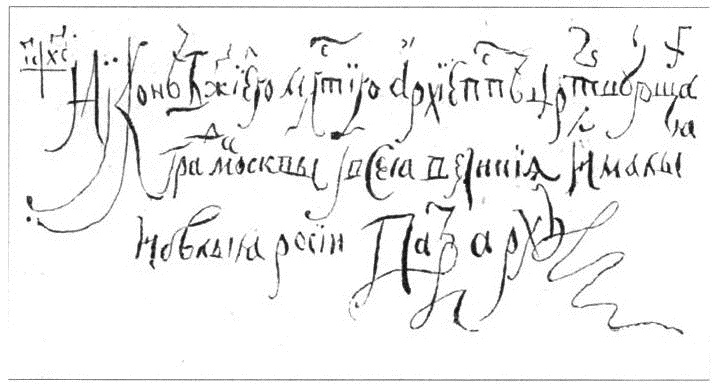 ІС ХС
Нїконъ Бжїею млстїю архїеппъ цртвующа
гра москвы і всеа великїя и малыя
и бѣлыя росїи Патрархъ